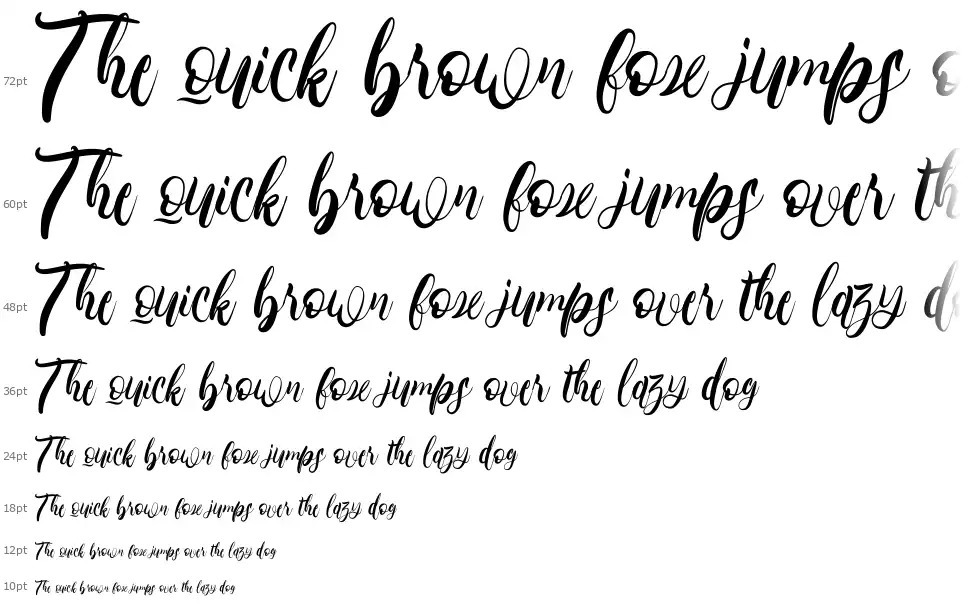 72pt The quick brown fox jumps o
60pt The quick brown fox jumps over th
48pt The quick brown fox jumps over the lazy do
36pt The quick brown fox jumps over the lazy dog
24pt The quick brown fox jumps over the lazy dog
18pt The quick brown fox jumps over the lazy dog
12pt The quick brown fox jumps over the lazy dog
10pt The quick brown fox jumps over the lazy dog